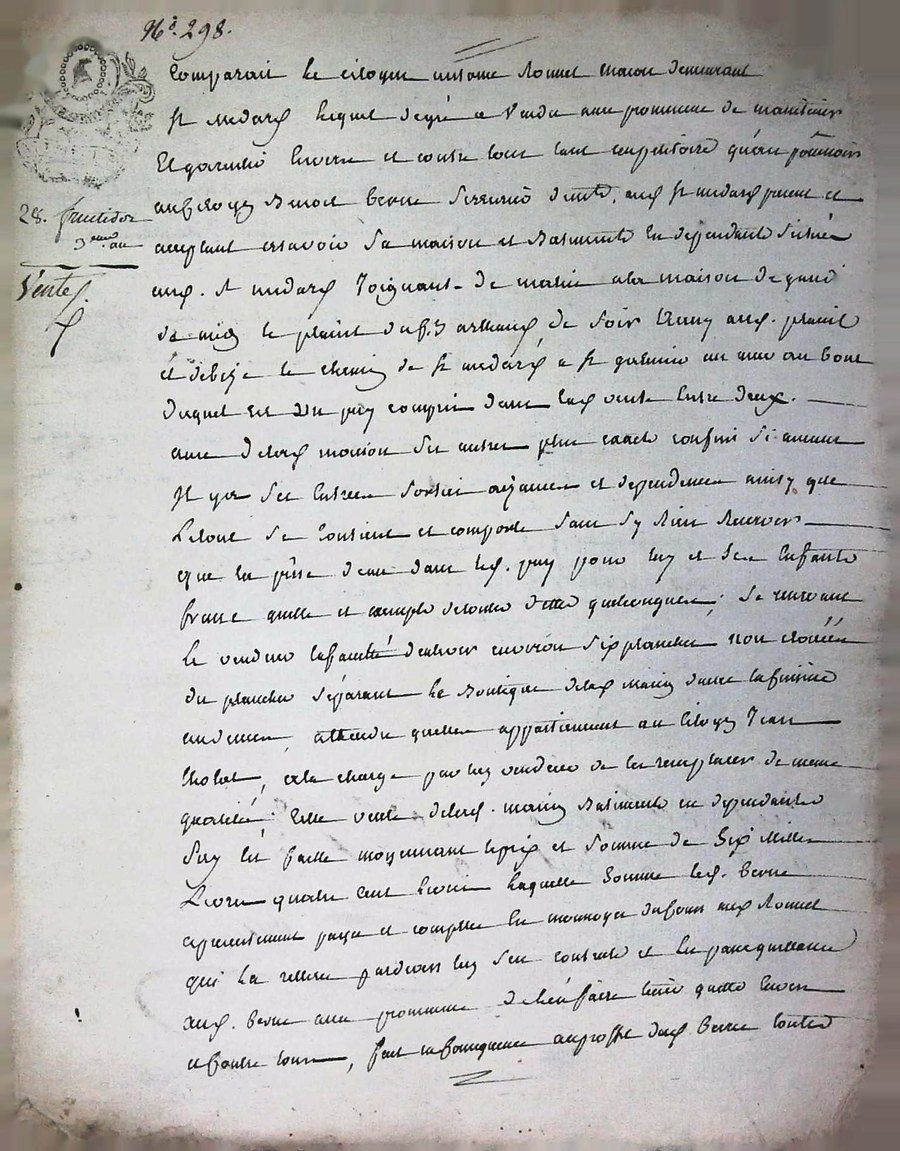 N.° 298.
Comparait le citoyen antoine Ronnet macon demeurant
28. fructidor
3eme an
Vente
St medard lequel degré a vendu avec promesse de maintenir
Et garentir Envers et contre tout
au Citoyen Benoit Berne Serrurier aud. St medard present et
acceptant assavoir Sa maison et Batiments En dependants Situés
aud. St medard Joignant de matin ala maison de
de midi le de Soir aud.
et debize le chemin de St medard a St galmier un mur au bout
duquel est un puy compris dans lad vente Entre deux.
avec delad maison Ses autres plus confins Si aucuns
Il y a Ses Entrées Sorties aisances et dependences ainsy que
Letout Se Contient et comporte Sans Sy Rien Reserver
que la prise deau dans led. puy pour luy et Ses Enfants
franc quitte et exempte detoutes dettes quelconques; Se reservant
le vendeur lafaculté denlever environ Six planches non clouées
du plancher Séparant la Boutique delad Maison davec
audessus, attendu quelles appartiennent au Citoyen Jean
Cholet, ala charge par led vendeur de les remplacer de meme
qualité: Cette vente delad. maison Batiments en dependants
Sus Est faitte moyennant leprix et Somme de Six Milles
Livres quatre Cent Livres laquelle Somme led. Berne
apresentement payé et comptée En monnoye ducours aud Ronnet
qui la retirée pardevers luy Sen contente et En passe quittance
Aud. Berne avec promesse de lien faire tenir quitte Envers
et contre tous, fait au proffit dud Berne toutes